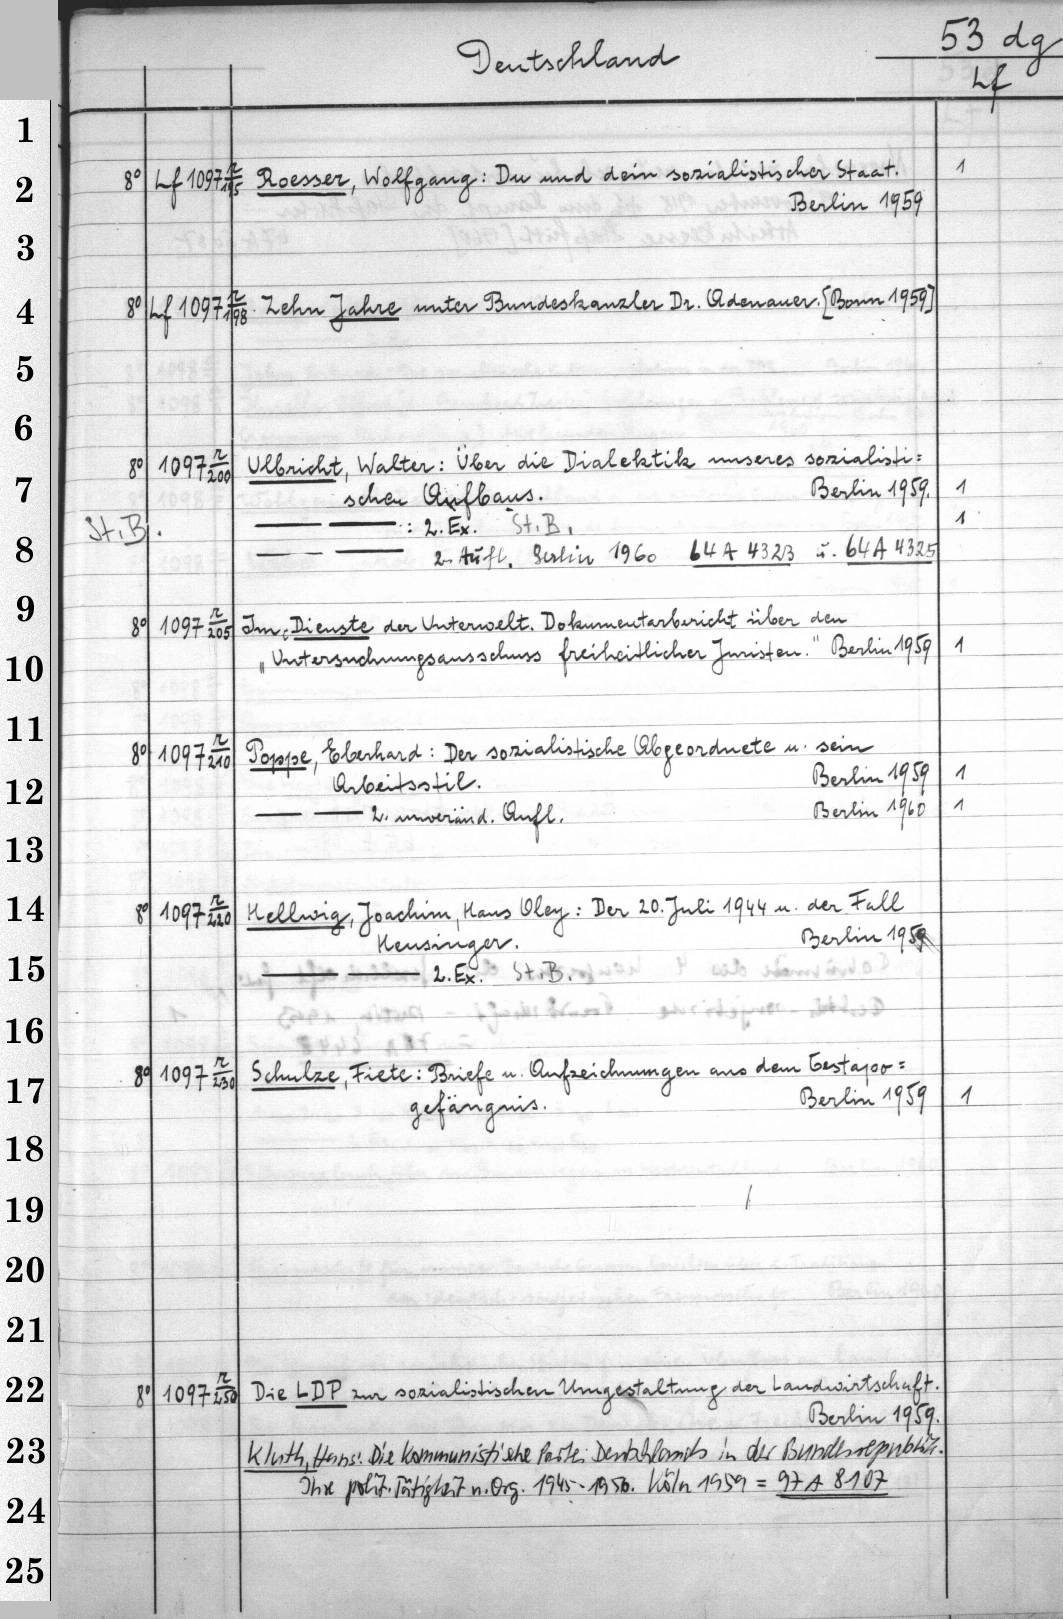 Deutschland
53 dg
Lf
1
2 8° Lf 1097 r/195 Roesser, Wolfgang: Du und dein sozialistischer Staat. 1
Berlin 1959
3
4 8° Lf 1097 r/198 Zehn Jahre unter Bundeskanzler Dr. Adenauer. [Bonn 1959]
5
6
8° 1097 r/200 Ulbricht, Walter: Über die Dialektik unseres sozialisti=
7 schen Aufbaus. Berlin 1959. 1
St.B. — — : 2. Ex. St.B. 1
8 — — 2. Aufl. Berlin 1960 64 A 4323 u. 64 A 4325
9
8° 1097 r/205 Im Dienste der Unterwelt. Dokumentarbericht über den
10 „Untersuchungsausschuss freiheitlicher Juristen." Berlin 1959 1
11
8° 1097 r/210 Poppe, Eberhard: Der sozialistische Abgeordnete u. sein
12 Arbeitsstil. Berlin 1959 1
— — 2. unveränd. Aufl. Berlin 1960 1
13
14 8° 1097 r/220 Hellwig, Joachim, Hans Oley: Der 20. Juli 1944 u. der Fall
Heusinger. Berlin 1959
15 — — 2. Ex. St.B.
16
8° 1097 r/230 Schulze, Fiete: Briefe u. Aufzeichnungen aus dem Gestapo=
17 gefängnis. Berlin 1959 1
18
19
20
21
22 8° 1097 r/250 Die LDP zur sozialistischen Umgestaltung der Landwirtschaft.
Berlin 1959.
23 Kluth, Hans: Die Kommunistische Partei Deutschlands in der Bundesrepublik.
Ihre polit. Tätigkeit u. Org. 1945-1956. Köln 1959 = 97 A 8107
24
25